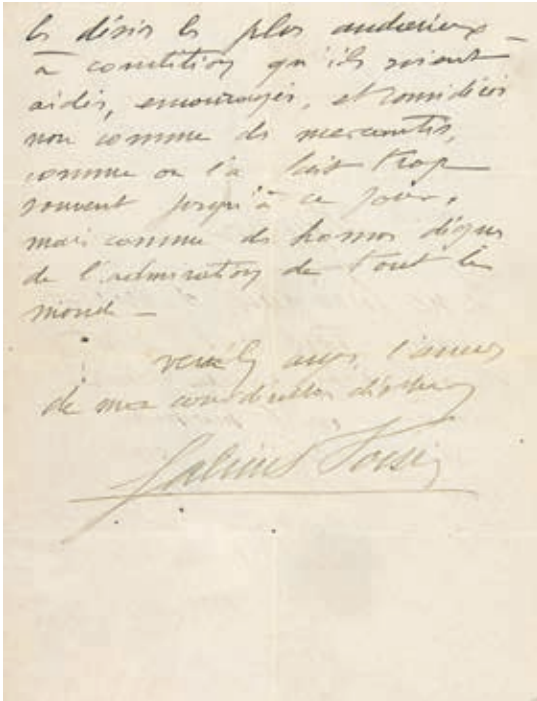 les désirs les plus audacieux –
à condition qu'ils soient
aidés, encouragés, et considérés
non comme des mercantis,
comme on l'a fait trop
souvent jusqu'à ce jour,
mais comme des hommes dignes
de l'admiration de tout le
monde –
de ma considération